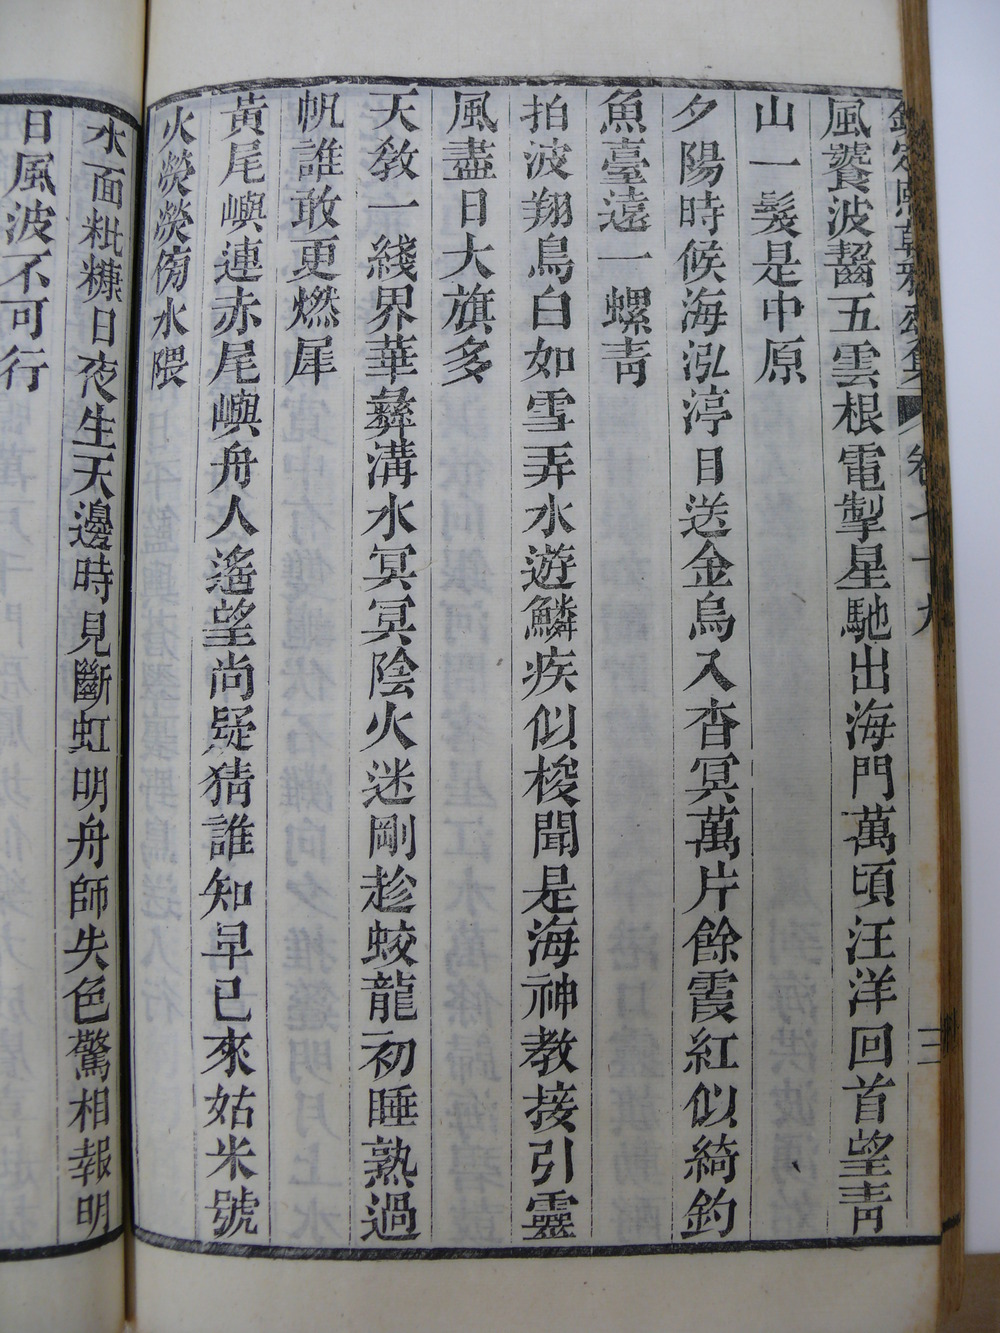 欽定熙朝雅頌集 卷七十九 三
風饕波齧五雲根電掣星馳出海門萬頃汪洋回首望靑
山一髮是中原
夕陽時候海泓渟目送金烏入杳冥萬片餘霞紅似綺釣
魚臺遠一螺靑
拍波翔鳥白如雪弄水遊鱗疾似梭聞是海神教接引靈
風盡日大旗多
天教一綫界華彝溝水冥冥陰火迷剛趁蛟龍初睡熟過
帆誰敢更燃犀
黃尾嶼連赤尾嶼舟人遙望尚疑猜誰知早已來姑米號
火熒熒傍水隈
水面粃糠日夜生天邊時見斷虹明舟師失色驚相報明
日風波不可行